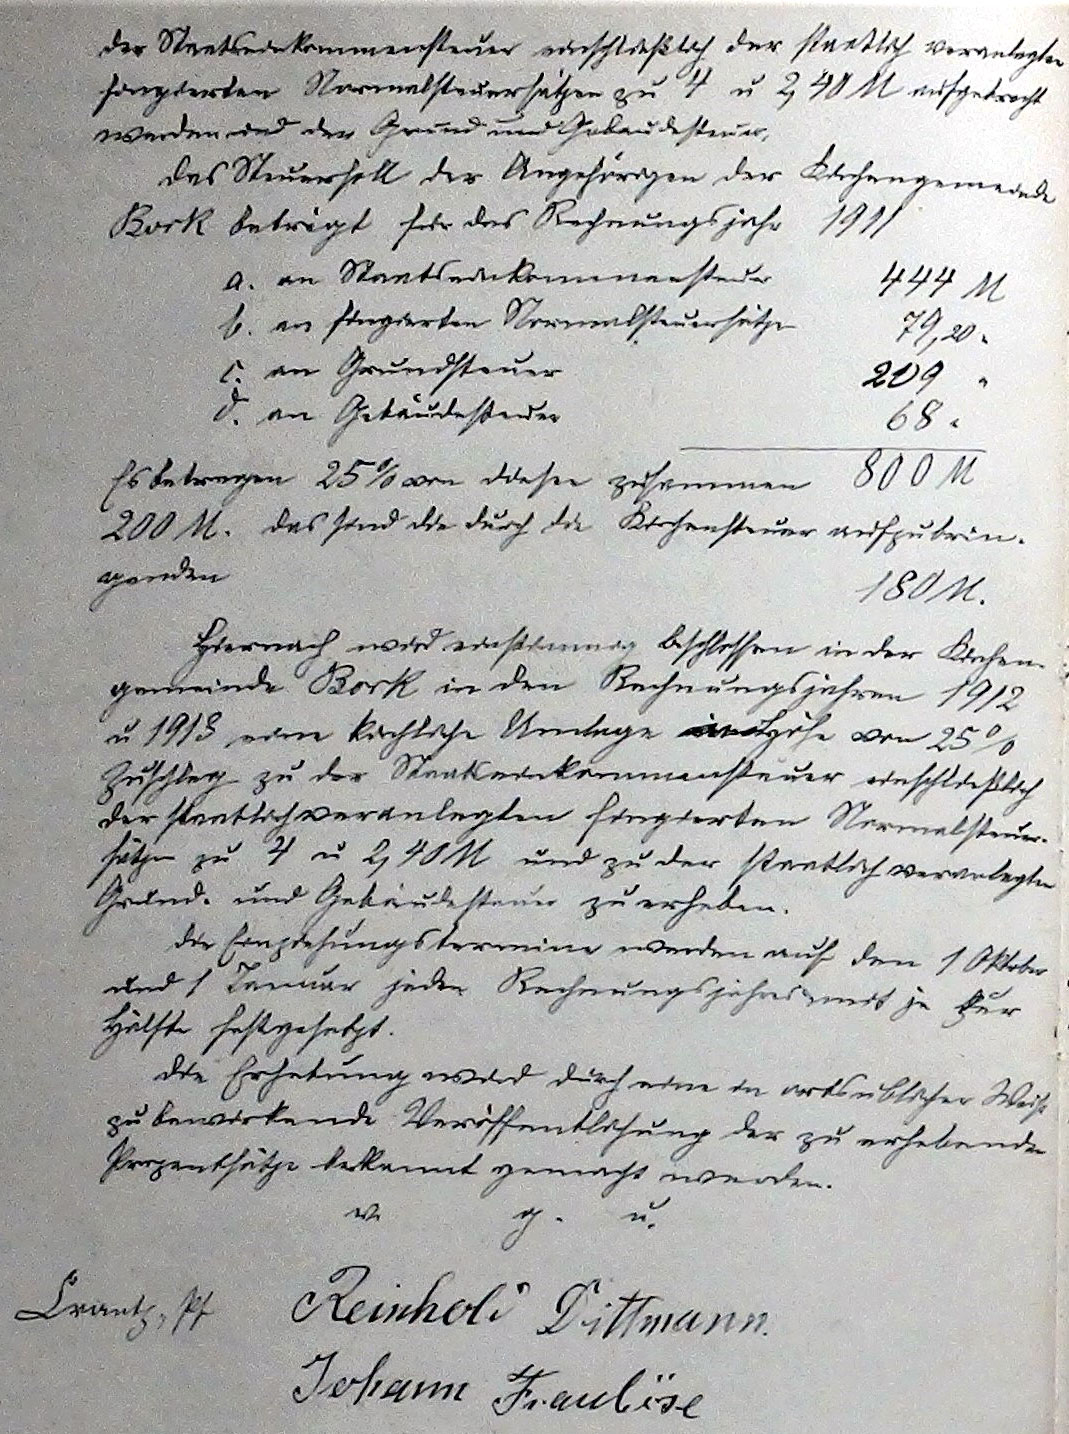 der Staatseinkommensteuer einschließlich der staatlich veranlagten
fingierten Normalsteuersätzen zu 4 u 2,40 M aufgebracht
werden und der Grund und Gebäudesteuer.
Das Steuersoll der Angehörigen der Kirchengemeinde
Bork beträgt für das Rechnungsjahr 1911
a. an Staatseinkommensteuer 444 M
b. an fingierten Normalsteuersätze 79,20 "
c. an Grundsteuer 209 "
d. an Gebäudesteuer 68 "
Es betragen 25% von diesen zusammen 800 M
200 M. das sind die durch die Kirchensteuer aufzubrin-
genden 180 M.
Hiernach wird einstimmig beschlossen in der Kirchen-
gemeinde Bork in den Rechnungsjahren 1912
u 1913 eine kirchliche Umlage in Höhe von 25%
Zuschlag zu der Staatseinkommensteuer einschließlich
der staatlich veranlagten fingierten Normalsteuer-
sätze zu 4 u 2,40 M und zu der staatlich veranlagten
Grund- und Gebäudesteuer zu erheben.
Die Einziehungstermine werden auf den 1 Oktober
und 1 Januar jeden Rechnungsjahres mit je zur
Hälfte festgesetzt.
Die Erhebung wird durch eine in ortsüblicher Weise
zu bewirkende Veröffentlichung der zu erhebenden
Prozentsätze bekannt gemacht werden.
v. g. u.
Crantz, Pf Reinhold Dittmann.
Johann